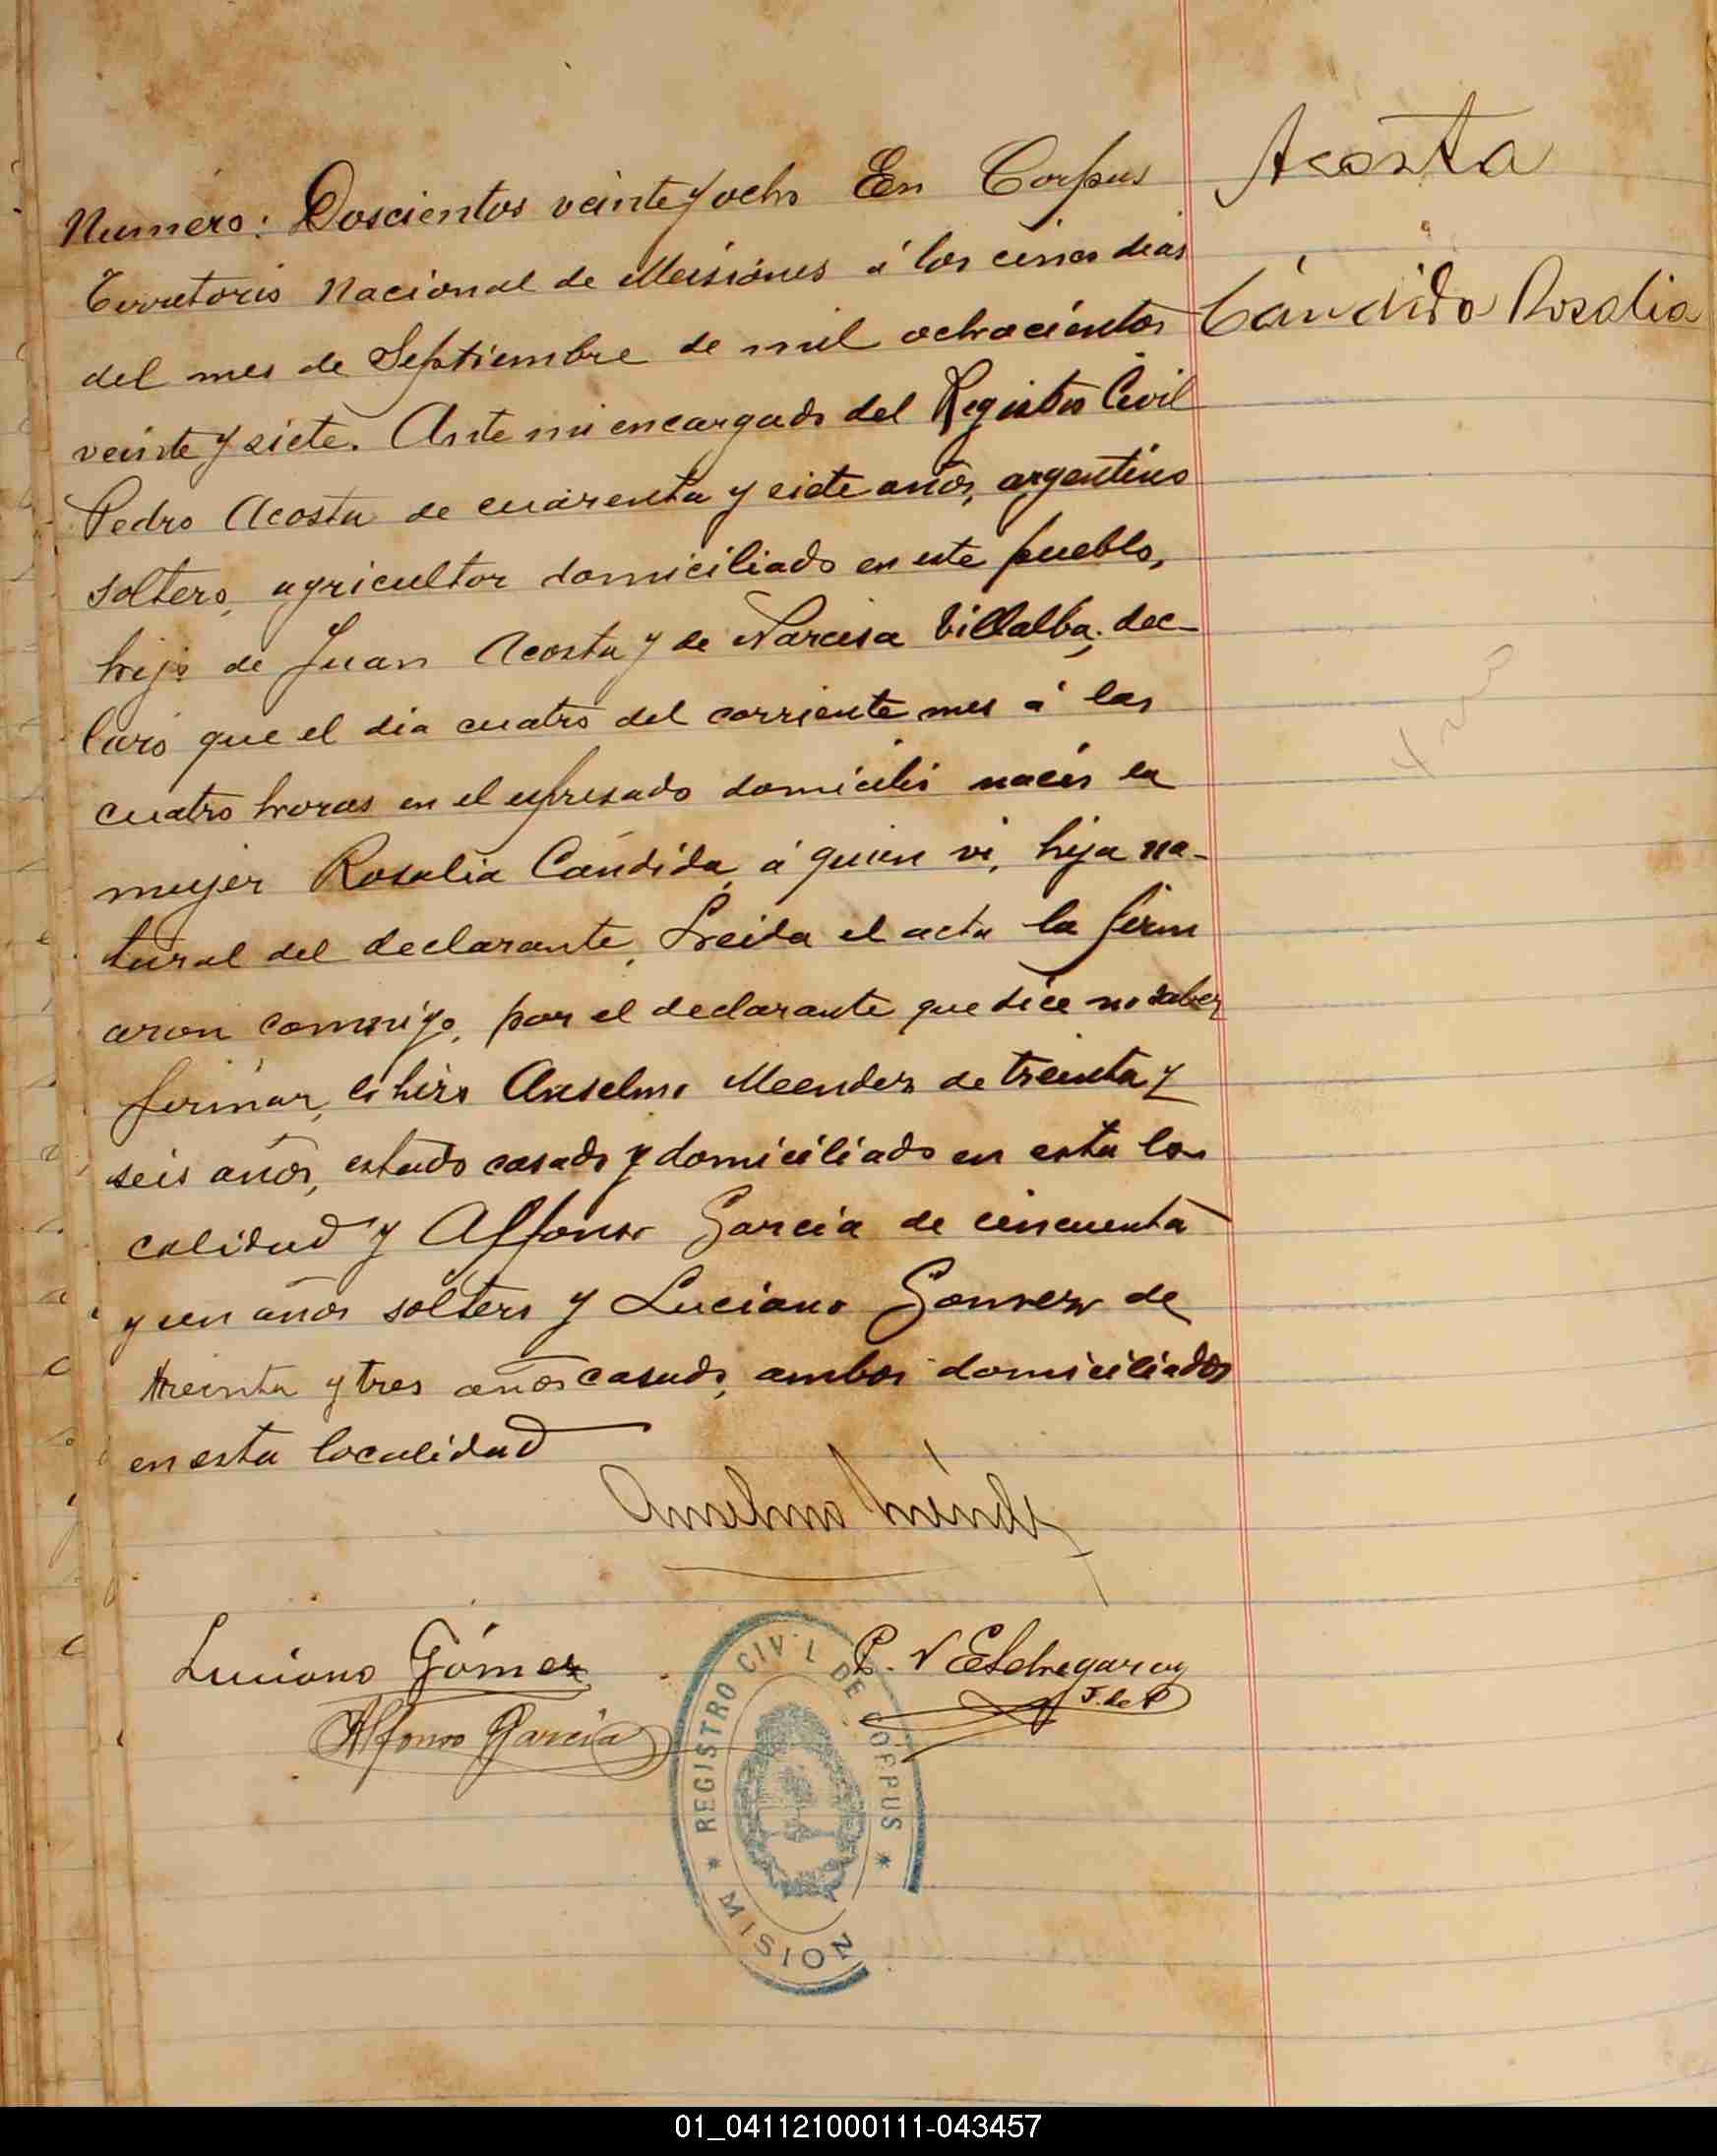 Acosta
Cándida Rosalia
Numero: Doscientos veinte y ocho En Corpus
Territorio Nacional de Misiones á los cinco dias
del mes de Septiembre de mil ochocientos
veinte y siete. Ante mi encargado del Registro Civil
Pedro Acosta de cuarenta y siete años, argentino
soltero, agricultor domiciliado en este pueblo,
hijo de Juan Acosta y de Narcisa Villalba; dec-
laró que el dia cuatro del corriente mes á las
cuatro horas en el espresado domicilio nació la
mujer Rosalia Cándida, á quien vi, hija na-
tural del declarante, Leida el acta la firm
aron conmigo, por el declarante que dice no saber
firmar, lo hizo Anselmo Meendez de treinta y
seis años, estado casado y domiciliado en esta lo-
calidad y Alfonso Garcia de cincuenta
y un años soltero y Luciano Gomez de
treinta y tres años casado, ambos domiciliados
en esta localidad
Anselmo Méndez
Luciano Gómez
P. N Etchegaray
J. de P
Alfonso Garcia
REGISTRO CIVIL DE CORPUS
* MISION *
01_041121000111-043457